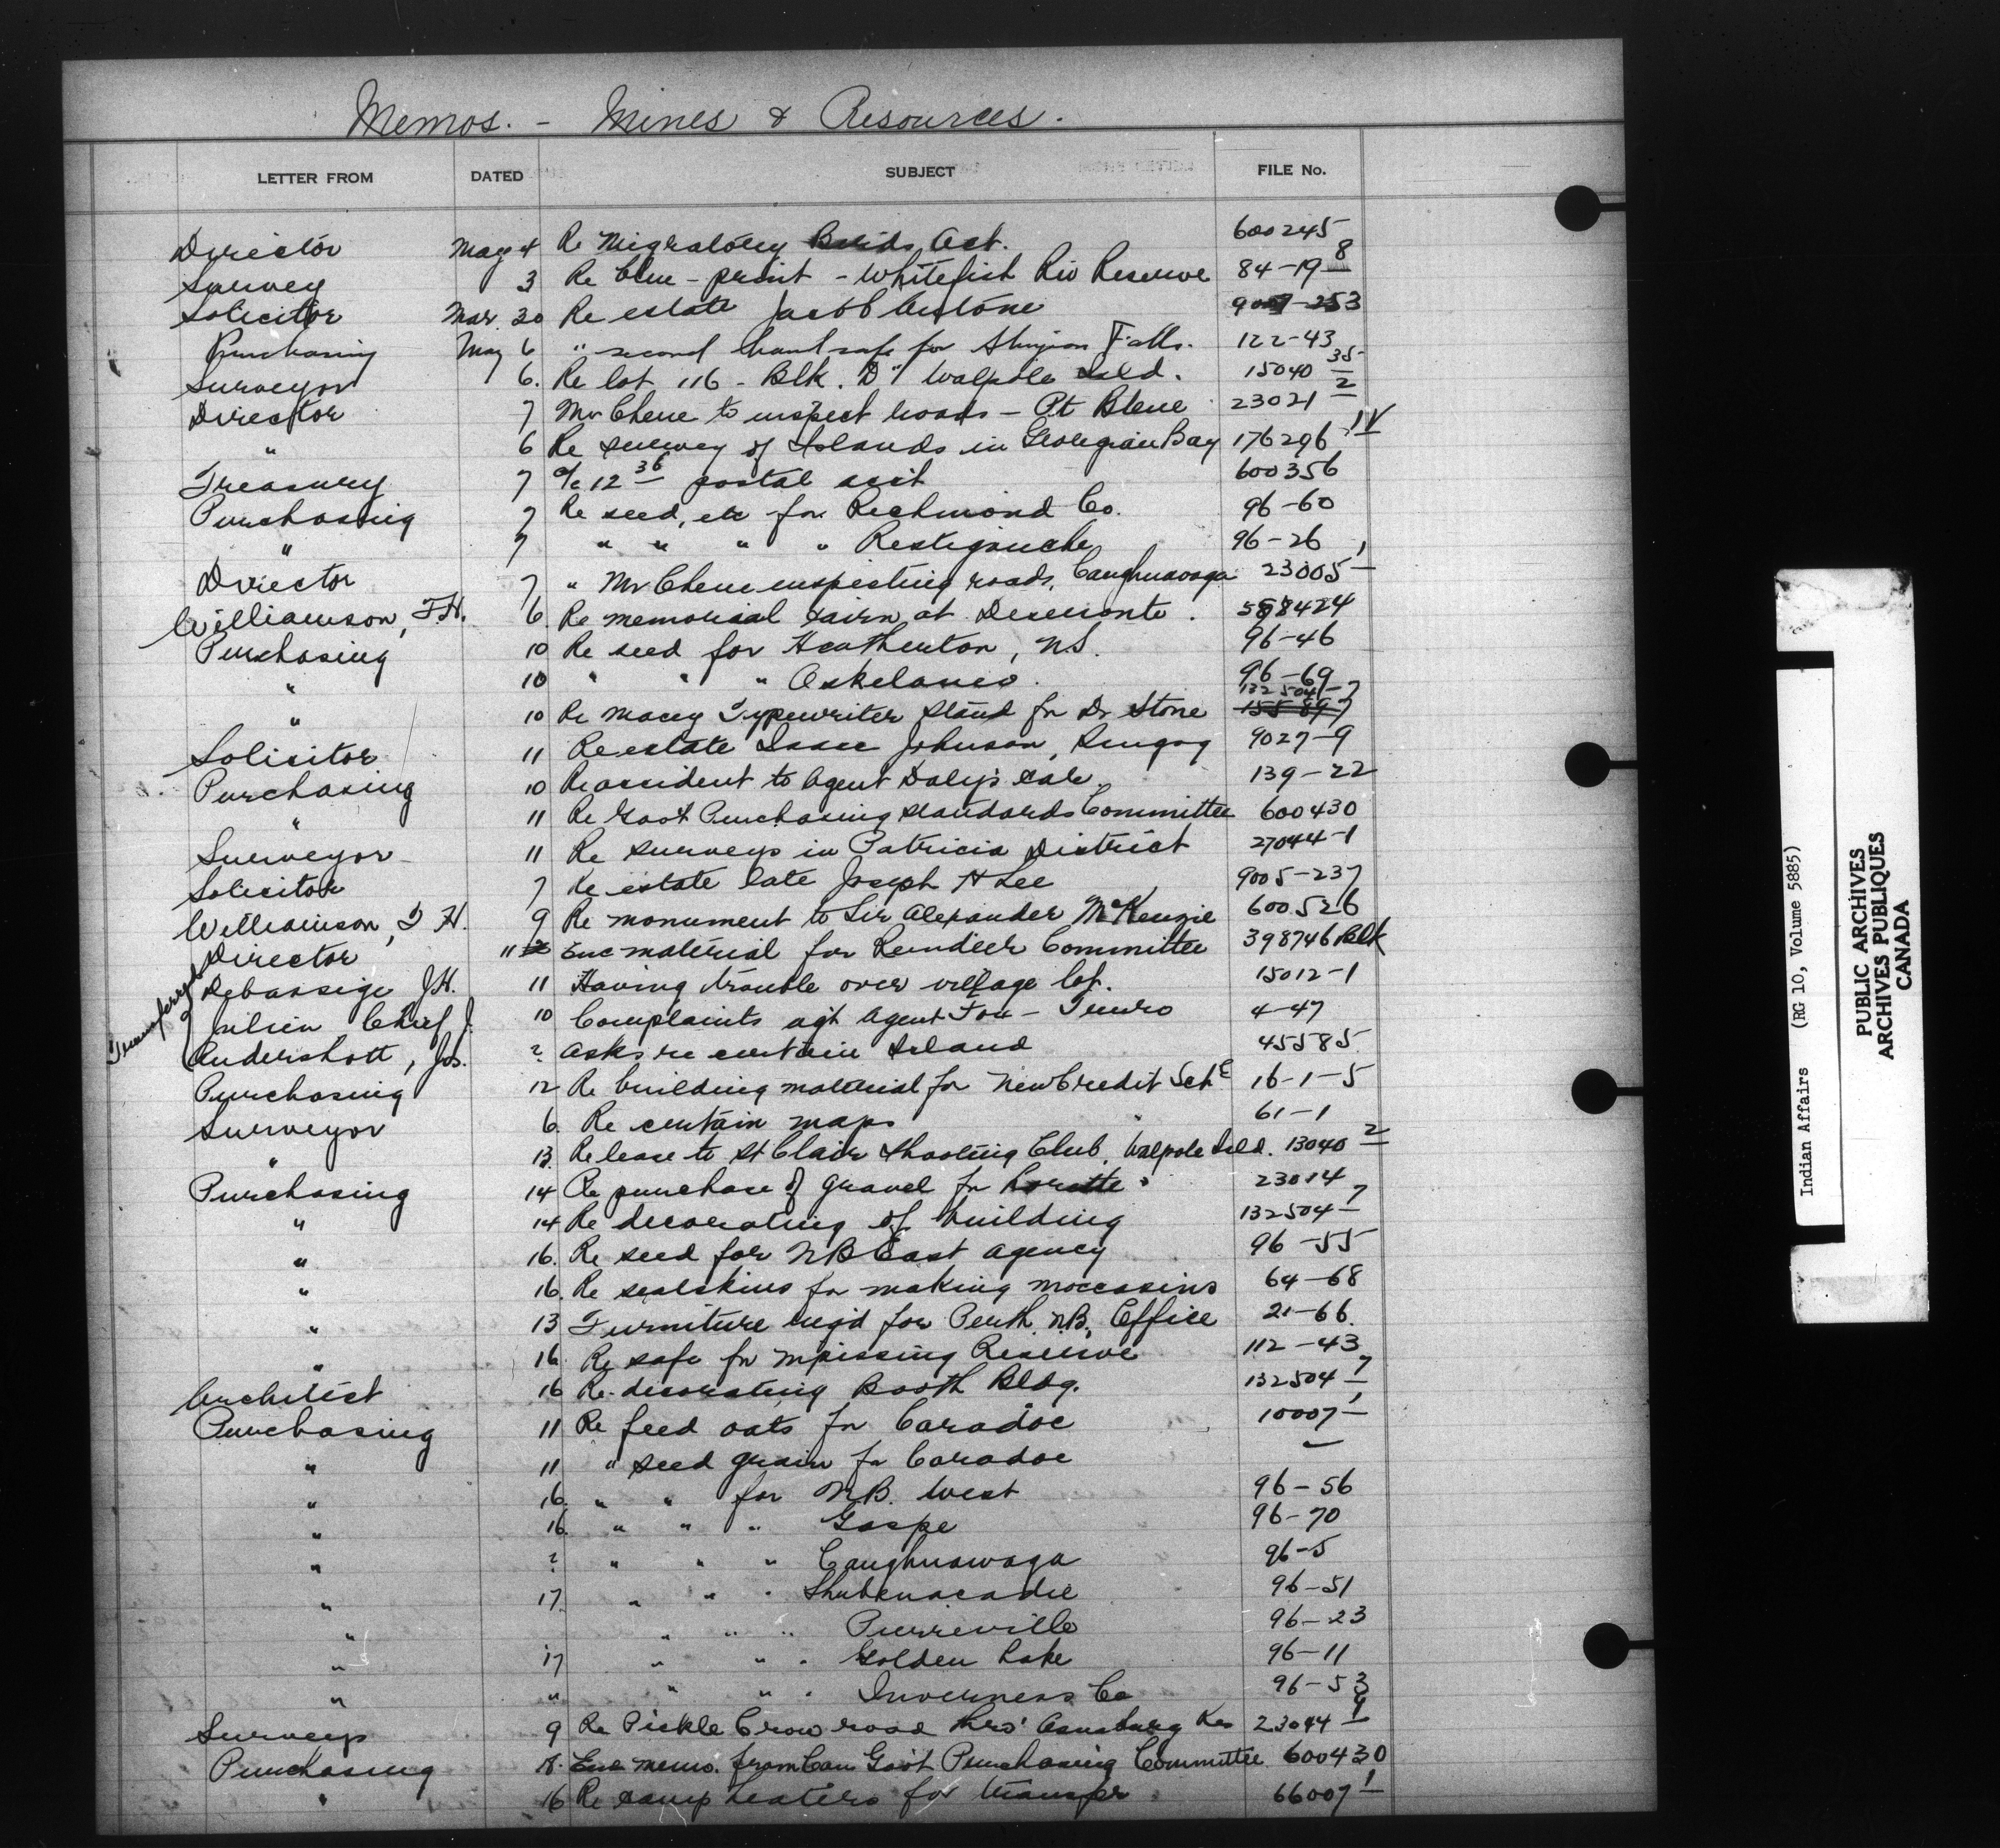 Memos. - Mines & Resources.
LETTER FROM DATED SUBJECT FILE No.
Director May 4 Re Migratory Birds Act. 600245
Survey 3 Re blue-print - Whitefish Riv Reserve 84-19 8
Solicitor Mar. 30 Re estate Jacob Antone
Purchasing May 6 " second hand safe for Sturgeon Falls. 122-43
Surveyor 6. Re lot 116 - Blk. "D" Walpole Isld. 15040 35
Director 7 Mr Chene to inspect roads - Pt Bleue 23021 2
" 6 Re survey of Islands in Georgian Bay 176296 IV
Treasury 7 a/c 12 36 postal acct 600356
Purchasing 7 Re seed, etc for Richmond Co. 96-60
" 7 " " " " Restigouche 96-26
Director 7 " Mr Chene inspecting roads, Caughnawaga 23005 1
Williamson, T.H. 6. Re memorial cairn at Deseronto. 568424
Purchasing 10 Re seed for Heatherton, N.S. 96-46
" 10 " " " Oskelaneo. 96-69
" 10 Re Macey Typewriter stand for Dr Stone 132504-7
Solicitor 11 Re estate Isaac Johnson, Scugog 9027-9
Purchasing 10 Re accident to Agent Daly's car. 139-22
" 11 Re Govt Purchasing Standards Committee 600430
Surveyor 11 Re surveys in Patricia District 27044-1
Solicitor 7 Re estate late Joseph H Lee 9005-237
Williamson, T H. 9 Re monument to Sir Alexander McKenzie 600526
Director 11 Enc material for Reindeer Committee 398746 Blk
Transferred
Debassige J.H. 11 Having trouble over village lot. 15012-1
Julien Chief J. 10 Complaints agt Agent Fox - Truro 4-47
Andershott, Jos. ? Asks re certain Island 45585
Purchasing 12 Re building material for New Credit Schl 16-1-5
Surveyor 6 Re certain maps 61-1
" 13. Re lease to St Clair Shooting Club, Walpole Isld. 13040 2
Purchasing 14 Re purchase of gravel for Lorette 23014
" 14 Re decorating of building 132504 7
" 16. Re seed for NB East Agency 96-55
" 16. Re sealskins for making moccasins 64-68
" 13 Furniture req'd for Perth N.B., Office 21-66
" 16 Re safe for Nipissing Reserve 112-43
Architect 16 Re-decorating Booth Bldg. 132504 7
Purchasing 11 Re feed oats for Caradoc 10007 1
" 11 " seed grain for Caradoc -
" 16 " " for N.B. West 96-56
" 16 " " " Gaspe 96-70
" ? " " " Caughnawaga 96-5
" 17 " " " Shubenacadie 96-51
" " " " Pierreville 96-23
" 17 " " " Golden Lake 96-11
" " " " " Inverness Co 96-53
Surveys 9 Re Pickle Crow road thro' Osnaburg Res 23044 9
Purchasing 18. Enc memo. from Can Govt Purchasing Committee 600430
" 16 Re camp heaters for transfer 66007 1
Indian Affairs (RG 10, Volume 5885)
PUBLIC ARCHIVES
ARCHIVES PUBLIQUES
CANADA